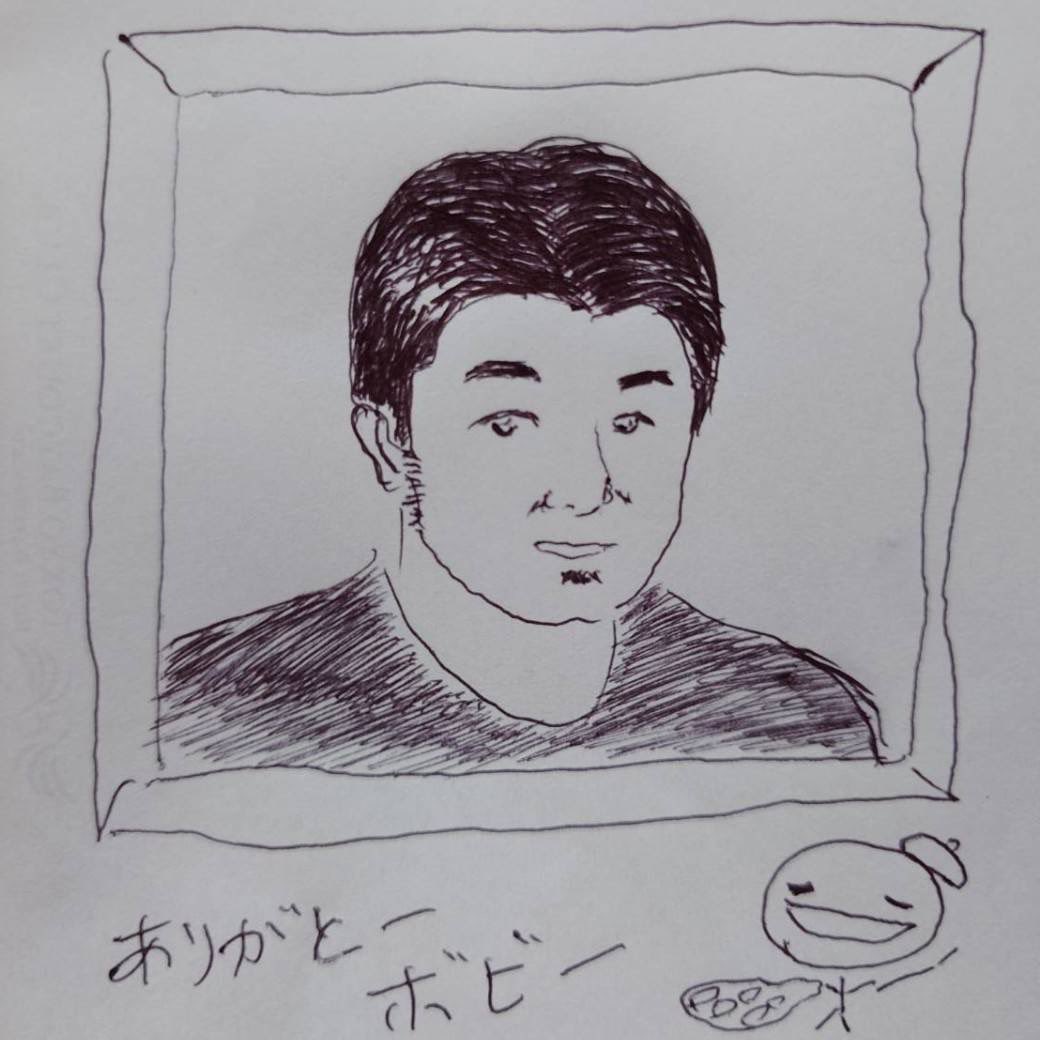 ありがとー
ボビー